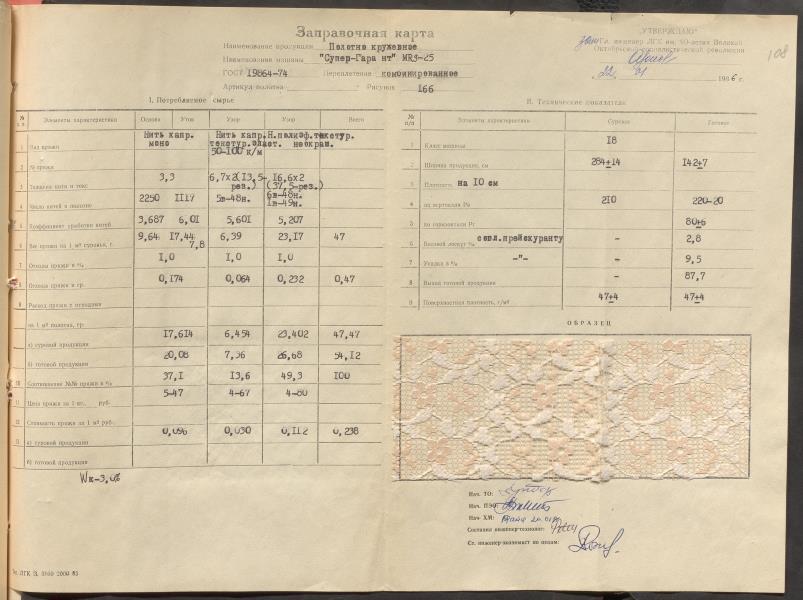 Заправочная карта
Наименование продукции Полотно кружевное
Наименование машины "Супер-Гара нт" МRЗ-25
ГОСТ 19864-74 Переплетение комбинированное
Артикул полотна Рисунок 166
„УТВЕРЖДАЮ"
Гл. инженер ЛГК им. 60-летия Великой
Октябрьской социалистической революции
„22" 01 1986 г.
108
I. Потребляемое сырье
№ п/п Элементы характеристики Основа Уток Узор Узор Всего
1 Вид пряжи Нить капр. моно Нить капр. текстур. эласт. 50-100 к/м Н.полиэф.текстур. неокрам.
2 № пряжи
3 Толщина нити в текс 3,3 6,7х2(13,5-рез.) 16,6х2 (37,5-рез.)
4 Число нитей в полотне 2250 1117 5в-48н. 6в-48н. 1в-49н.
5 Коэффициент уработки нитей 3,687 6,01 5,601 5,207
6 Вес пряжи на 1 м² суровья, г. 9,64 17,44 7,8 6,39 23,17 47
7 Отходы пряжи в % 1,0 1,0 1,0
8 Отходы пряжи в гр. 0,174 0,064 0,232 0,47
9 Расход пряжи с отходами
на 1 м² полотна, гр.
а) суровой продукции 17,614 6,454 23,402 47,47
б) готовой продукции 20,08 7,36 26,68 54,12
10 Соотношение №№ пряжи в % 37,1 13,6 49,3 100
11 Цена пряжи за 1 кг. руб. 5-47 4-67 4-80
12 Стоимость пряжи за 1 м² руб.
13 а) суровой продукции 0,096 0,030 0,112 0,238
б) готовой продукции
Wк-3,0%
II. Технические показатели
№ п/п Элементы характеристики Суровое Готовое
1 Класс машины 18
2 Ширина продукции, см 284±14 142±7
3 Плотность на 10 см
4 по вертикали Рв 210 220-20
5 по горизонтали Рг 80±6
6 Весовой лоскут % согл.прейскуранту - 2,8
7 Усадка в % -"- - 9,5
8 Выход готовой продукции - 87,7
9 Поверхностная плотность, г/м² 47±4 47±4
ОБРАЗЕЦ
Нач. ТО:
Нач. ПЭО:
Нач. ХМ:
Составил инженер-технолог:
Ст. инженер-экономист по ценам:
ЛГК З. 3860 2000 83